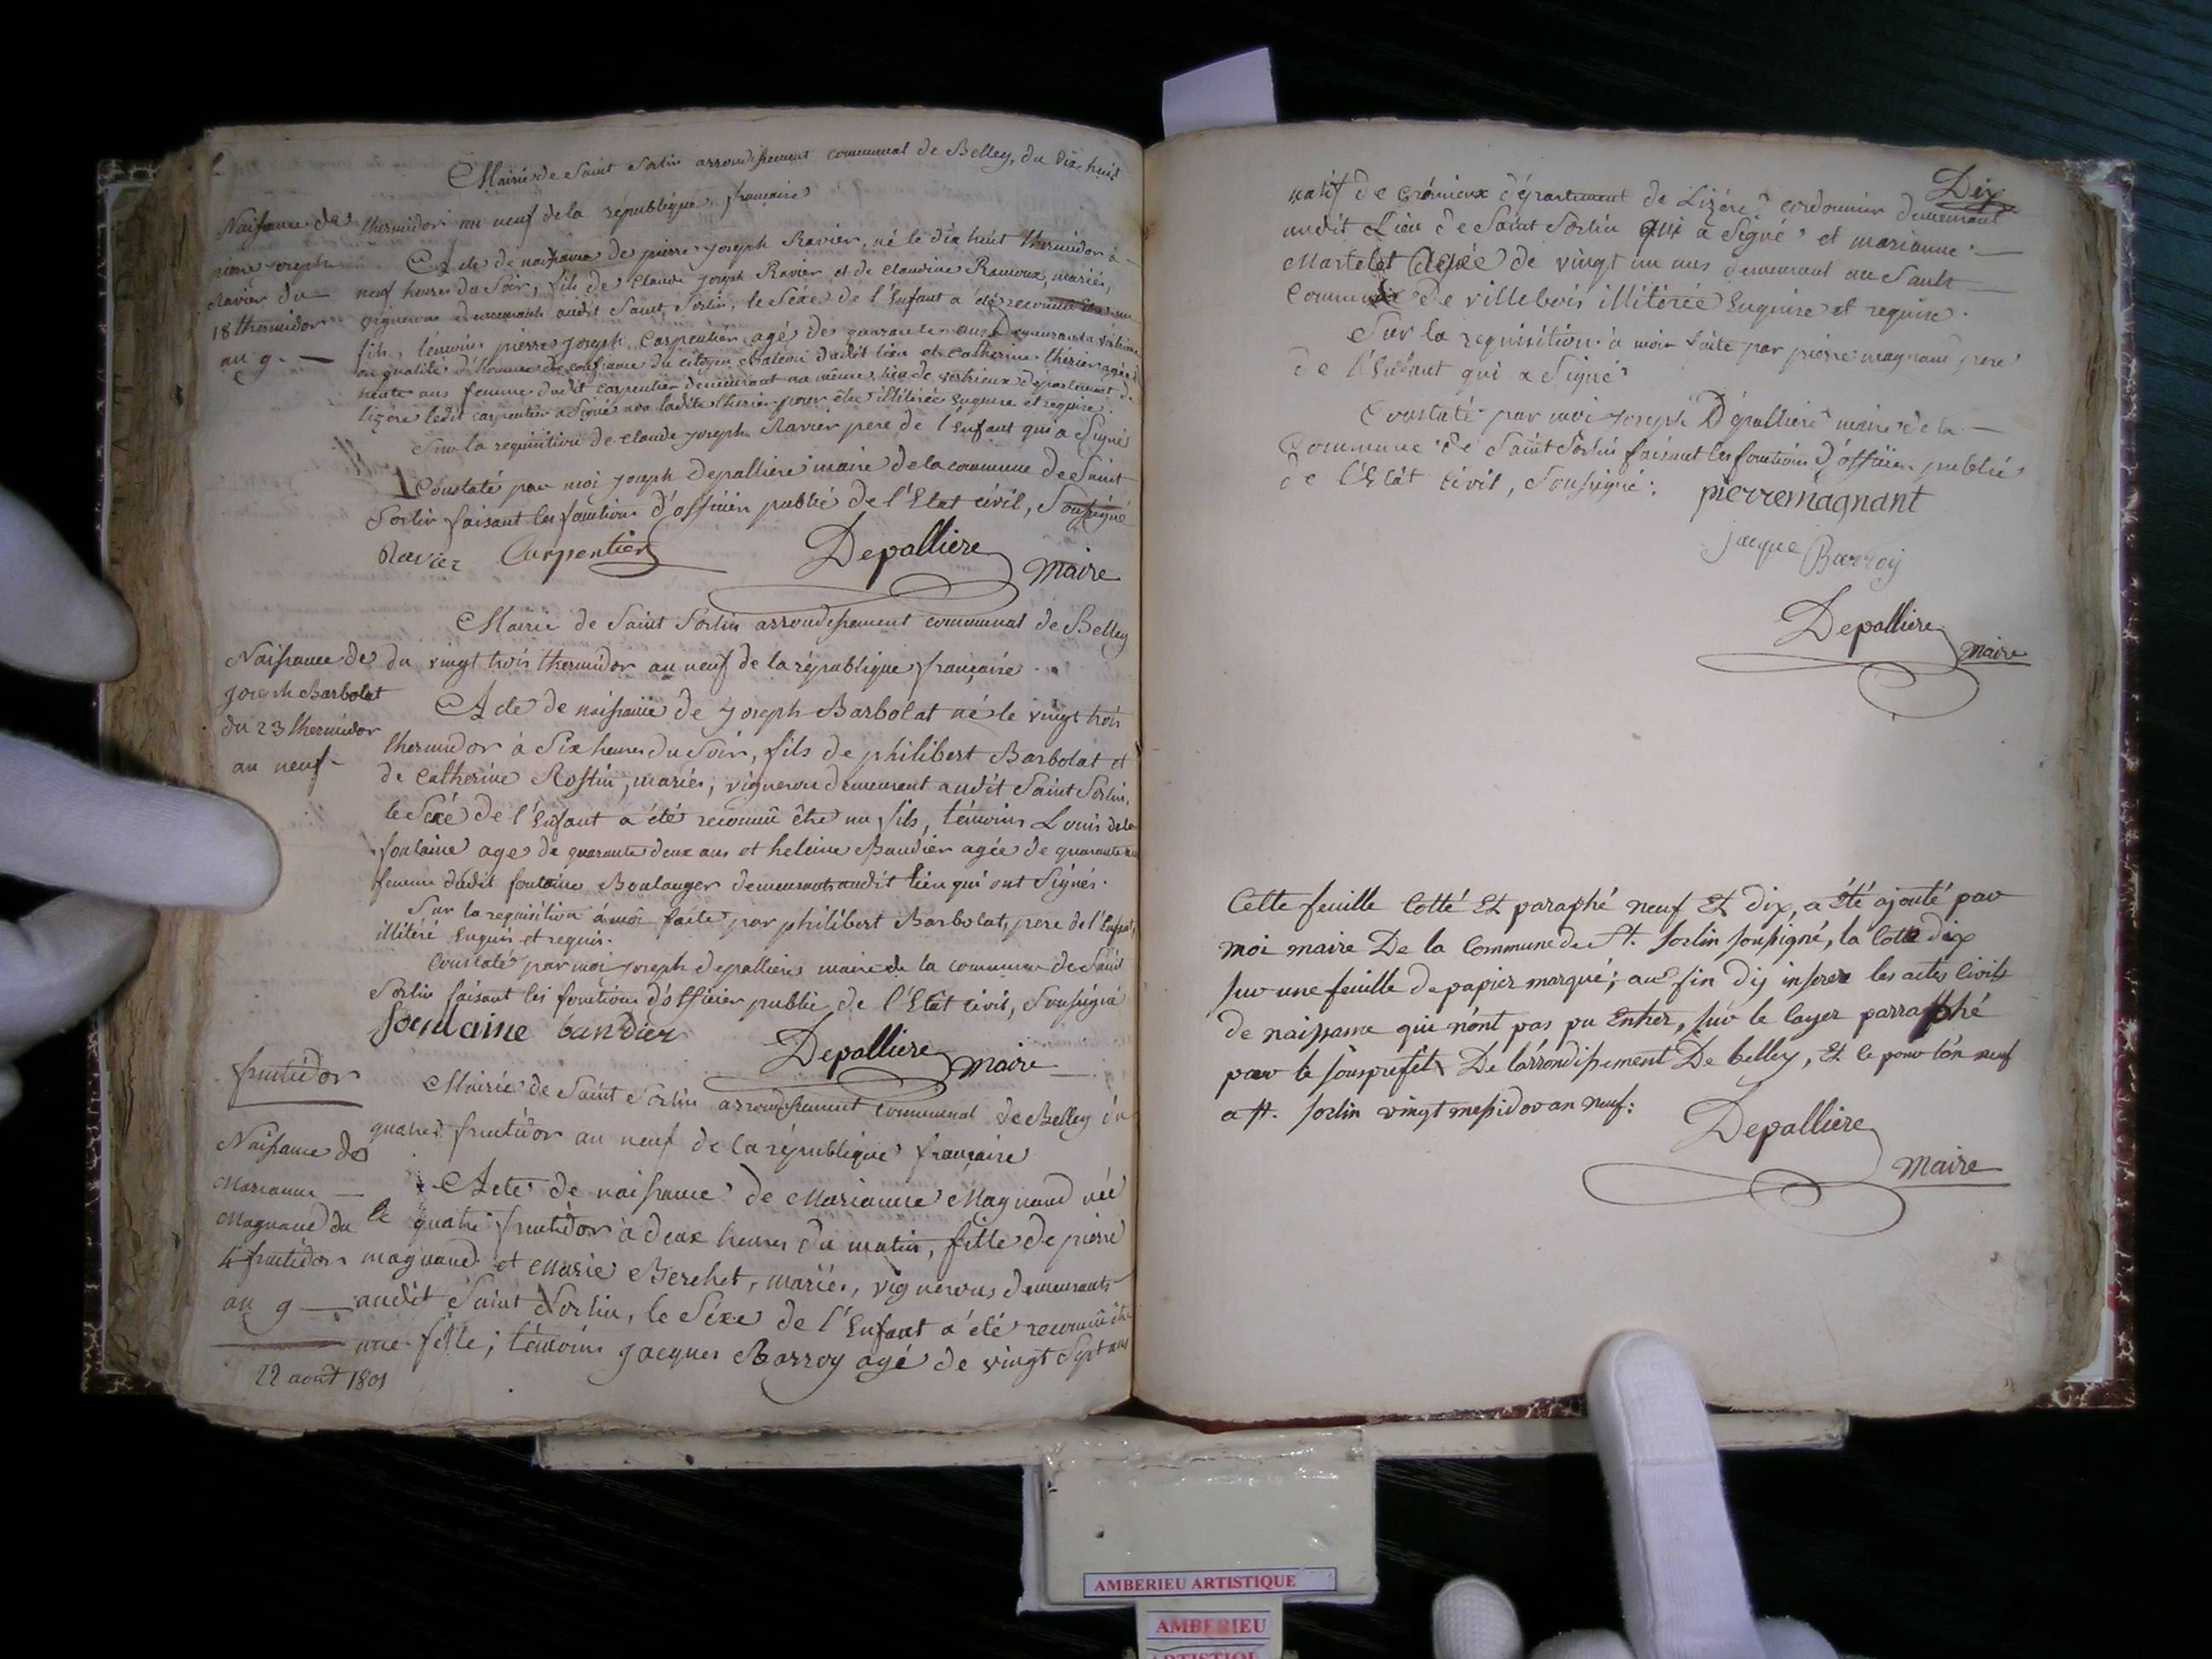 Mairie de Saint Sorlin arrondissement communal de Belley, du dix huit
thermidor an neuf de la république française
Naissance de
pierre joseph
Ravier du
18 thermidor
an 9.
Acte de naissance de pierre joseph Ravier, né le dix huit thermidor à
neuf heures du Soir, fils de Claude joseph Ravier et de Claudine Ramoux, mariés,
vignerons demeurants audit Saint Sorlin, le Séxe de l'Enfant a été reconnu
fils, témoins pierre joseph Carpentier agé de quarante ans demeurant a
en qualité d'homme de confiance du citoyen dudit lieu et Catherine therier agée de
trente ans femme dudit carpentier demeurant au même lieu de vertrieux département de
lizére ledit carpentier a Signé non ladite therier pour être illitérée enquise et requise.
Sur la requisition de Claude joseph Ravier pere de l'Enfant qui a Signé
Constaté par moi joseph Depalliere maire de la commune de Saint
Sorlin faisant les fonctions d'officier public de l'Etat civil, Soussigné
Ravier Carpentier Depalliere maire
Mairie de Saint Sorlin arrondissement communal de Belley
du vingt trois thermidor an neuf de la république française
Naissance de
joseph Barbolat
du 23 thermidor
an neuf
Acte de naissance de joseph Barbolat né le vingt trois
thermidor à Six heures du Soir, fils de philibert Barbolat et
de Catherine Rostin, mariés, vigneron demeurant audit Saint Sorlin,
le Séxé de l'Enfant a été reconnû être un fils, témoins Louis dela
fontaine agé de quarante deux ans et heleine Baudier agée de quarante
femme dudit fontaine Boulanger demeurants audit lieu qui ont Signés.
Sur la requisition à moi faite par philibert Barbolat, pere de l'Enfant,
illitéré Enquis et requis.
Constaté par moi joseph depalliere maire de la commune de Saint
Sorlin faisant les fonctions d'officier public de l'Etat civil, Soussigné
fontaine baudier Depalliere maire
fructidor
Mairie de Saint Sorlin arrondissement communal de Belley du
quatre fructidor an neuf de la république française
Naissance de
Marianne
Magnand du
4 fructidor
an 9
22 août 1801
Acte de naissance de Marianne Magnand née
le quatre fructidor à deux heures du matin, fille de pierre
magnand et Marie Berchet, mariés, vignerons demeurants
audit Saint Sorlin, le Séxe de l'Enfant a été reconnû être
une fille; témoins jacques Barroy agé de vingt Sept ans
Dix
natif de Crémieux département de Lizére cordonnier demeurant
audit Lieu de Saint Sorlin qui a Signé et marianne
Martelet agée de vingt un ans demeurant au Sault
Commune de villebois illitérée Enquise et requise.
Sur la requisition à moi faite par pierre magnand pere
de l'Enfant qui a Signé
Constaté par moi joseph Depalliere maire de la
Commune de Saint Sorlin faisant les fonctions d'officier public
de l'Etât civil, Soussigné:
pierremagnant
jacque Barroy
Depalliere maire
Cette feuille Cotté Et paraphé neuf Et dix, a été ajouté par
moi maire De la Commune de St. Sorlin soussigné, la Cotte dix
sur une feuille de papier marqué; au fin d'y inserer les actes Civils
de naissance qui n'ont pas pu Entrer, sur le cayer parraphé
par le souspréfet De l'arrondissement De belley, Et ce pour l'an neuf
a St. Sorlin vingt messidor an neuf:
Depalliere
maire
AMBERIEU ARTISTIQUE
AMBERIEU
ARTISTIQUE